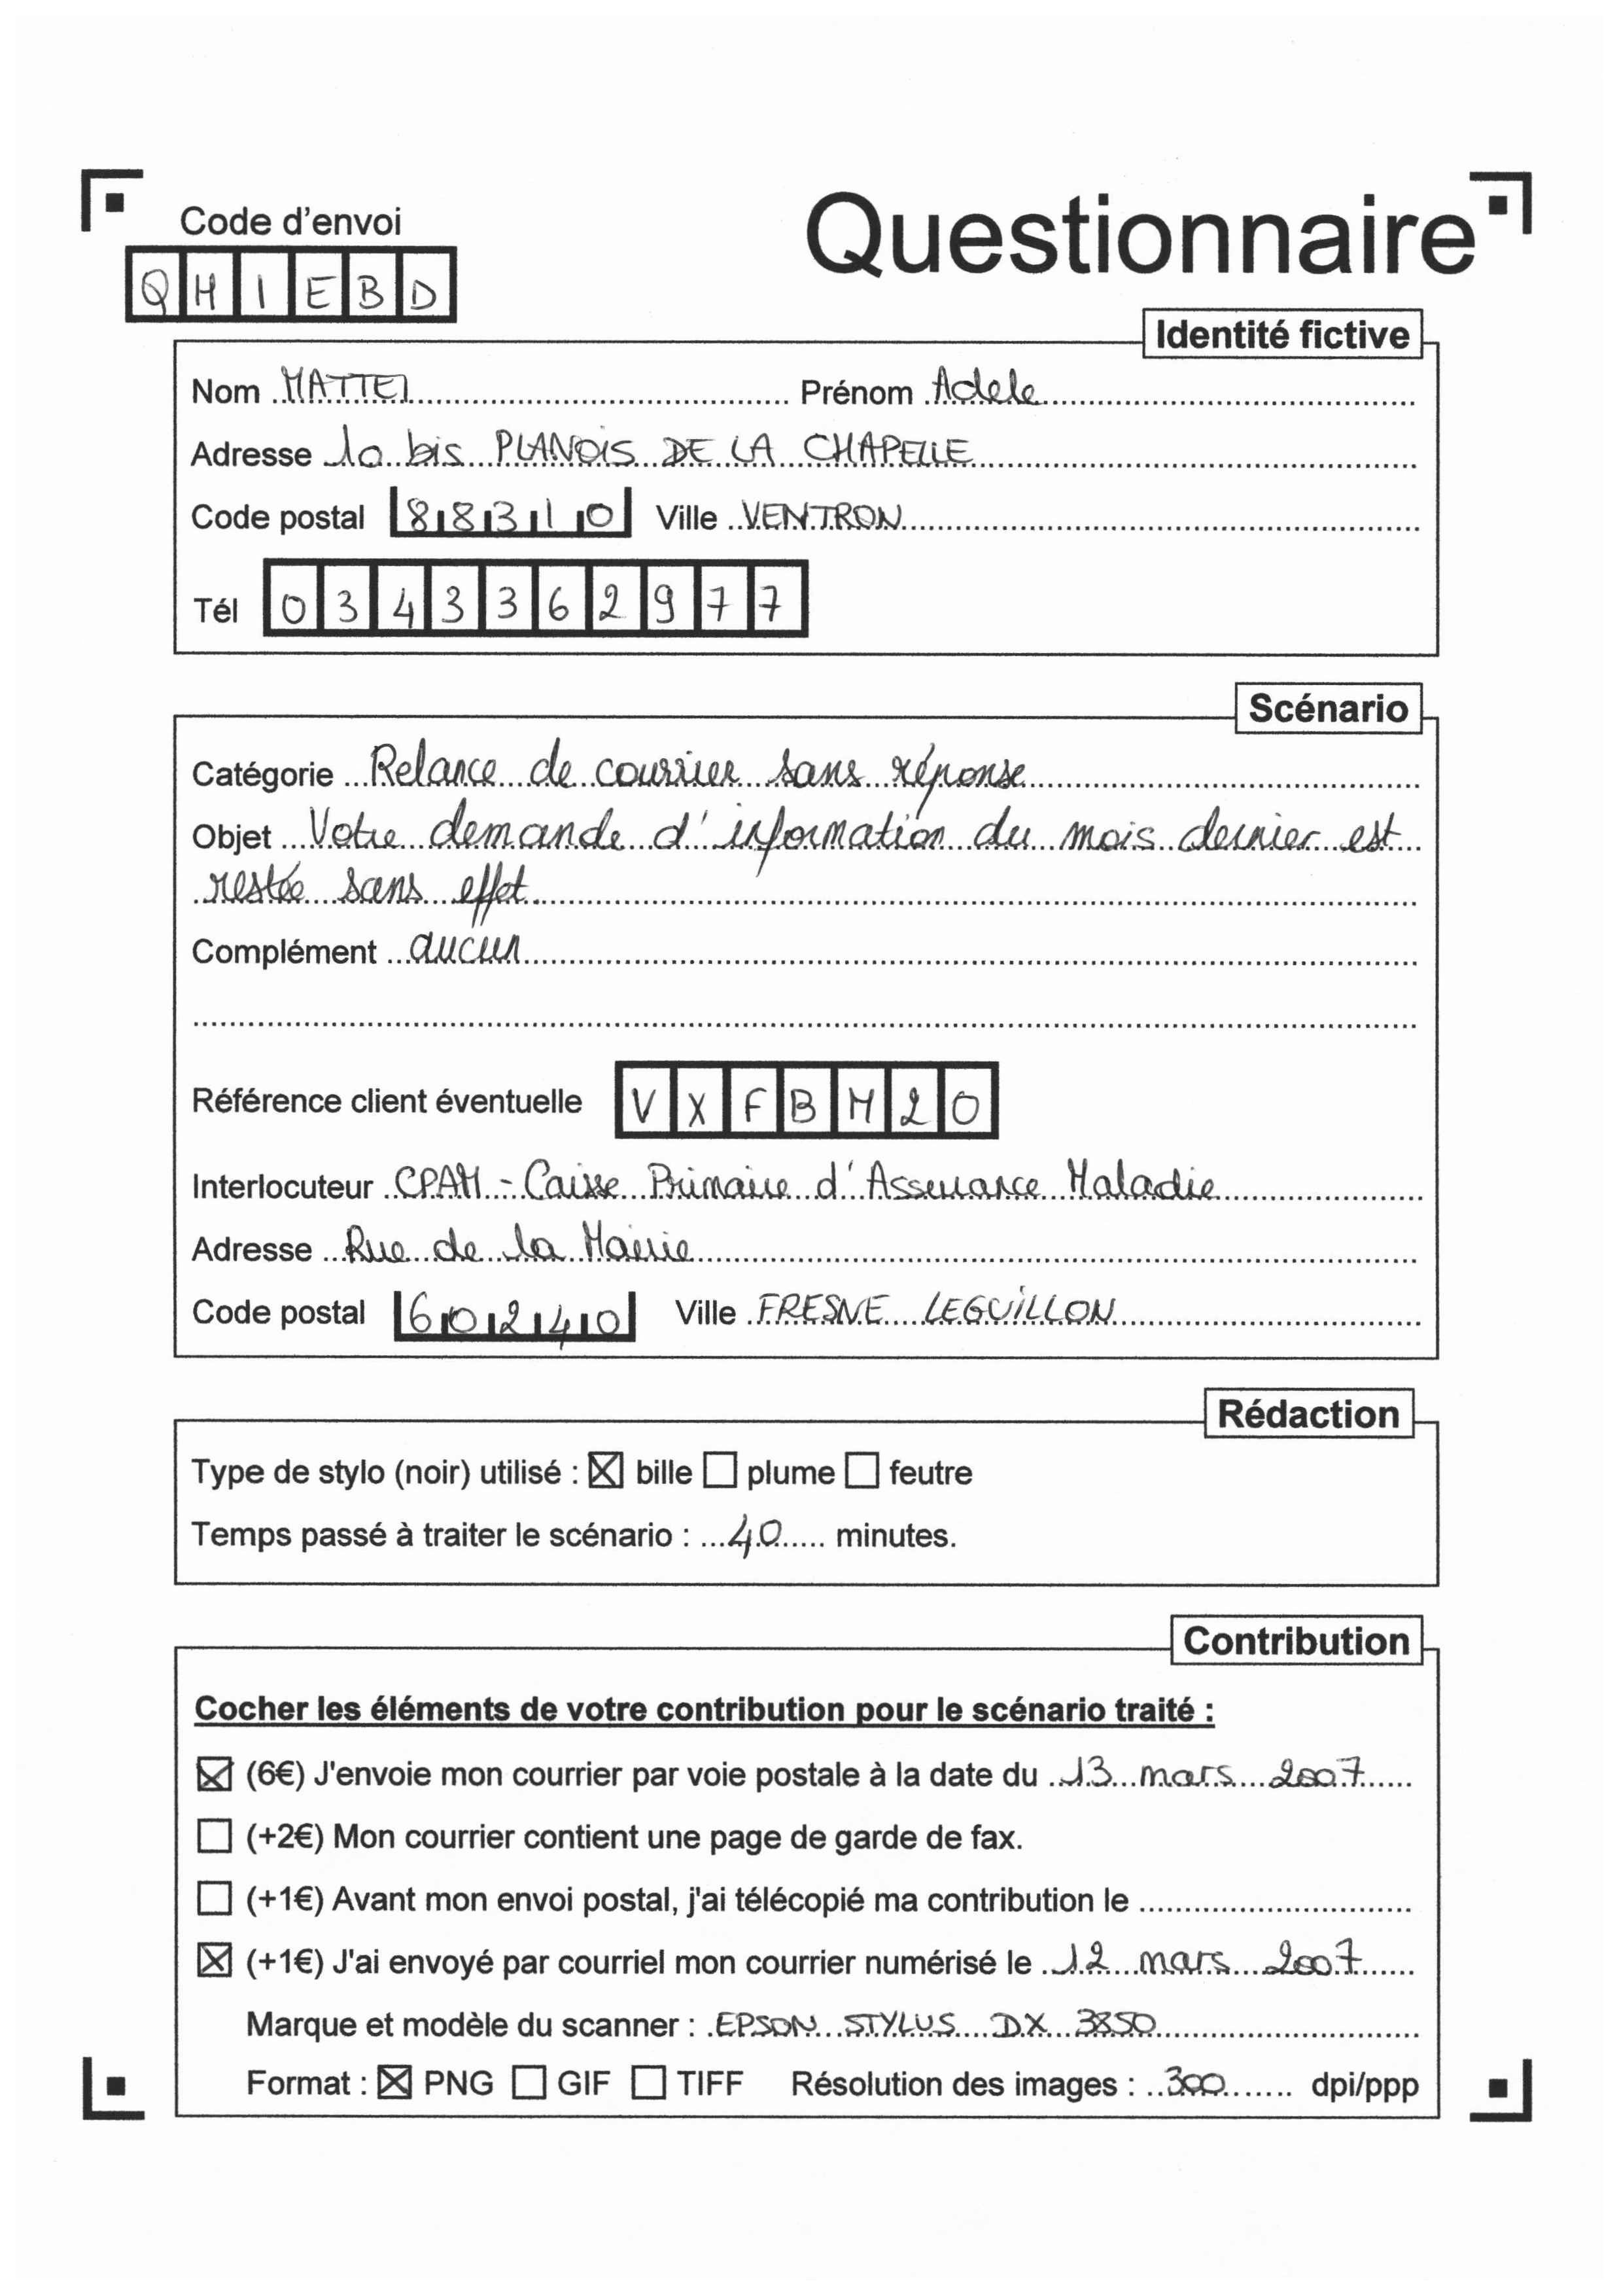 Code d'envoi
Questionnaire
QHIEBD
Identité fictive
Nom MATTEI Prénom Adele
Adresse 10 bis PLANOIS DE LA CHAPELLE
Code postal 88310 Ville VENTRON
Tél 0343362977
Scénario
Catégorie Relance de courrier sans réponse
Objet Votre demande d'information du mois dernier est
restée sans effet.
Complément aucun
Référence client éventuelle VXFBM20
Interlocuteur CPAM - Caisse Primaire d'Assurance Maladie
Adresse Rue de la Mairie
Code postal 60240 Ville FRESNE LEGUILLON
Rédaction
Type de stylo (noir) utilisé : ☒ bille ☐ plume ☐ feutre
Temps passé à traiter le scénario : 40 minutes.
Contribution
Cocher les éléments de votre contribution pour le scénario traité :
☒ (6€) J'envoie mon courrier par voie postale à la date du 13 mars 2007
☐ (+2€) Mon courrier contient une page de garde de fax.
☐ (+1€) Avant mon envoi postal, j'ai télécopié ma contribution le
☒ (+1€) J'ai envoyé par courriel mon courrier numérisé le 12 mars 2007
Marque et modèle du scanner : EPSON STYLUS DX 3850
Format : ☒ PNG ☐ GIF ☐ TIFF Résolution des images : 300 dpi/ppp